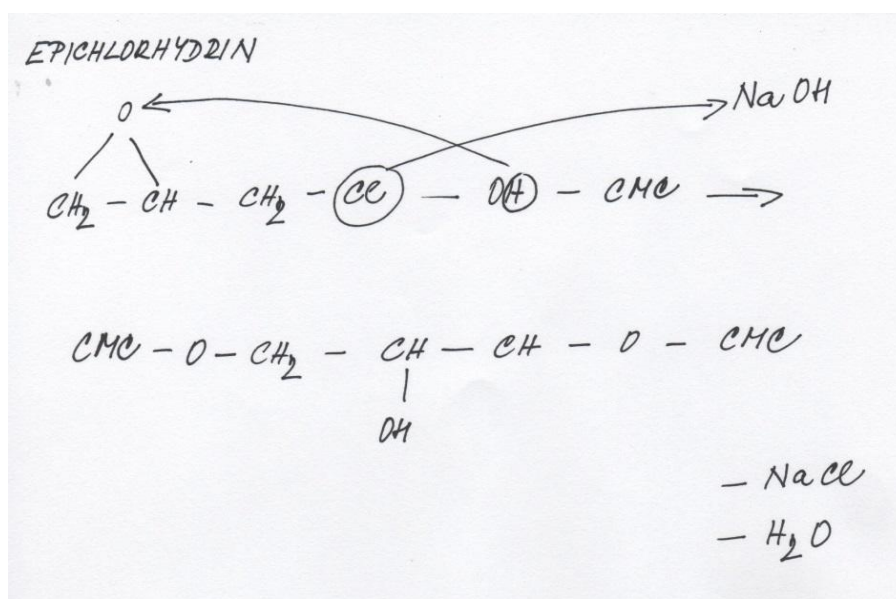 EPICHLORHYDRIN
O
NaOH
CH2 - CH - CH2 - Cl - OH - CMC →
CMC - O - CH2 - CH - CH - O - CMC
OH
- NaCl
- H2O